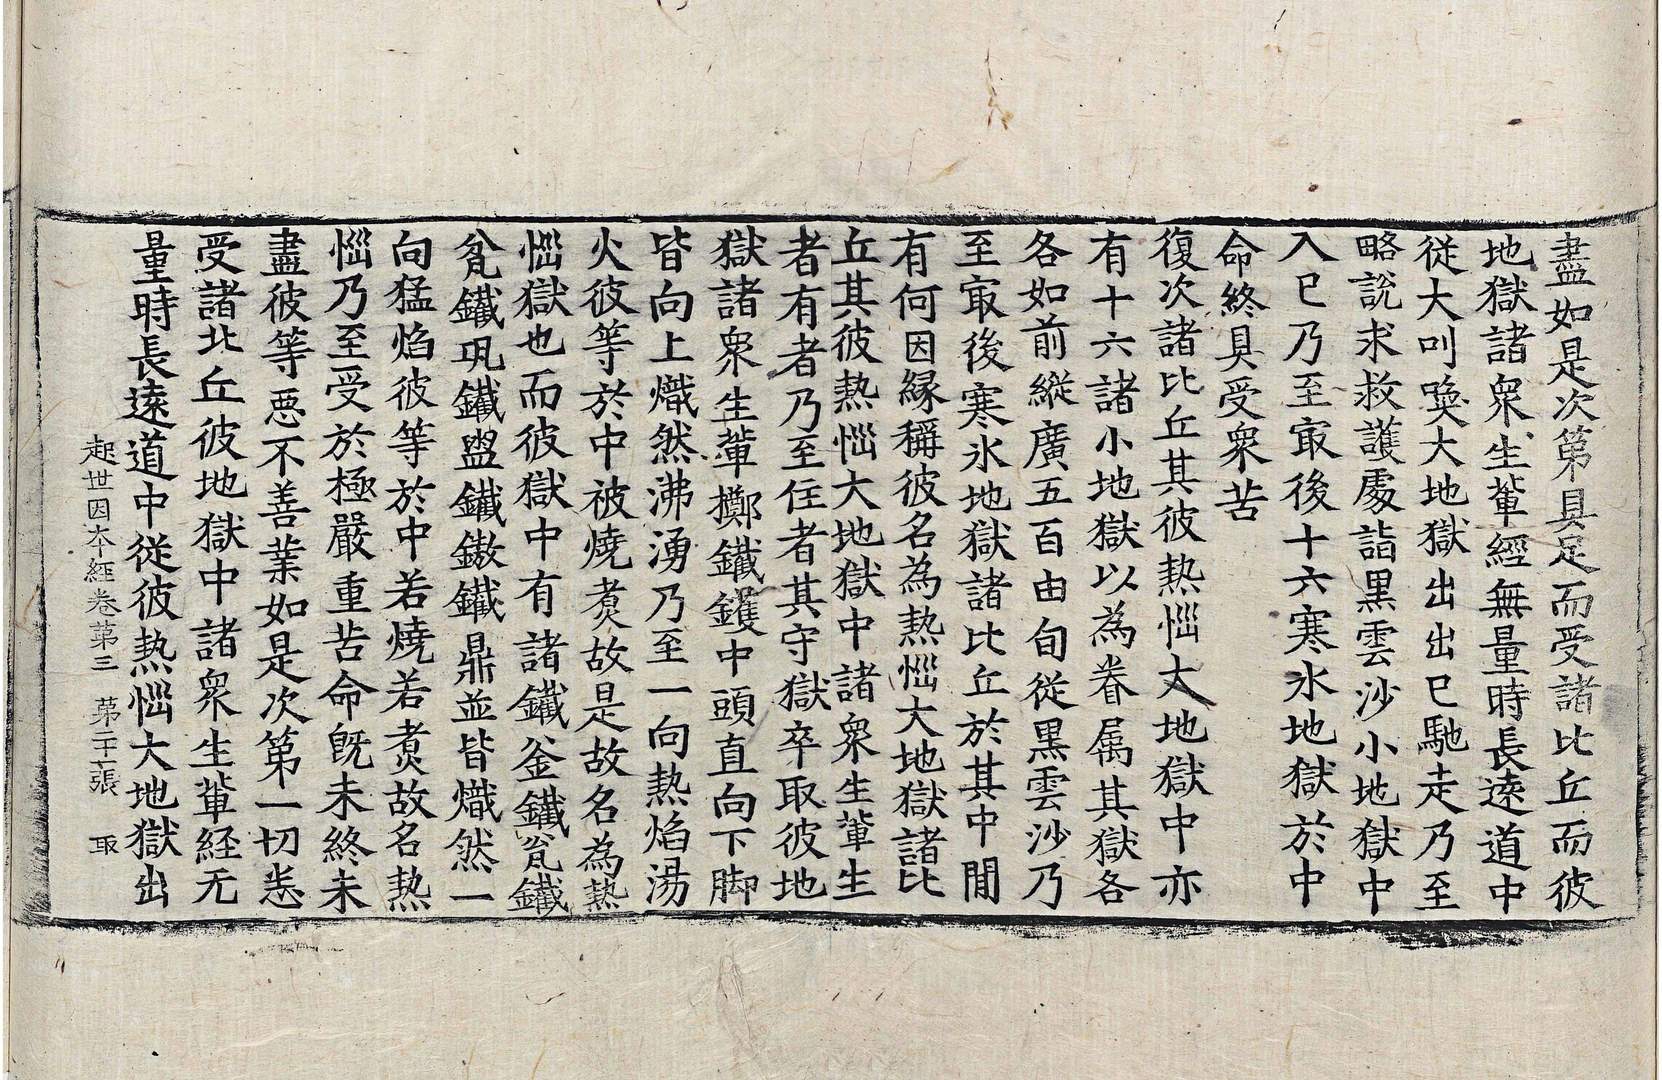 盡如是次第具足而受諸比丘而彼
地獄諸衆生軰經無量時長遠道中
從大叫喚大地獄出出已馳走乃至
略說求救護處詣黑雲沙小地獄中
入已乃至㝡後十六寒氷地獄於中
命終具受衆苦
復次諸比丘其彼熱惱大地獄中亦
有十六諸小地獄以為眷属其獄各
各如前縱廣五百由旬從黑雲沙乃
至㝡後寒氷地獄諸比丘於其中間
有何因緣稱彼名為熱惱大地獄諸比
丘其彼熱惱大地獄中諸衆生軰生
者有者乃至住者其守獄卒取彼地
獄諸衆生軰擲鐵鑊中頭直向下脚
皆向上熾然沸湧乃至一向熱焰湯
火彼等於中被燒煑故是故名為熱
惱獄也而彼獄中有諸鐵釜鐵瓮鐵
瓫鐵瓨鐵盥鐵鏊鐵鼎並皆熾然一
向猛焰彼等於中若燒若煑故名熱
惱乃至受於極嚴重苦命旣未終未
盡彼等惡不善業如是次第一切悉
受諸比丘彼地獄中諸衆生軰経无
量時長遠道中從彼熱惱大地獄出
起世因本經卷第三 第二十張 取